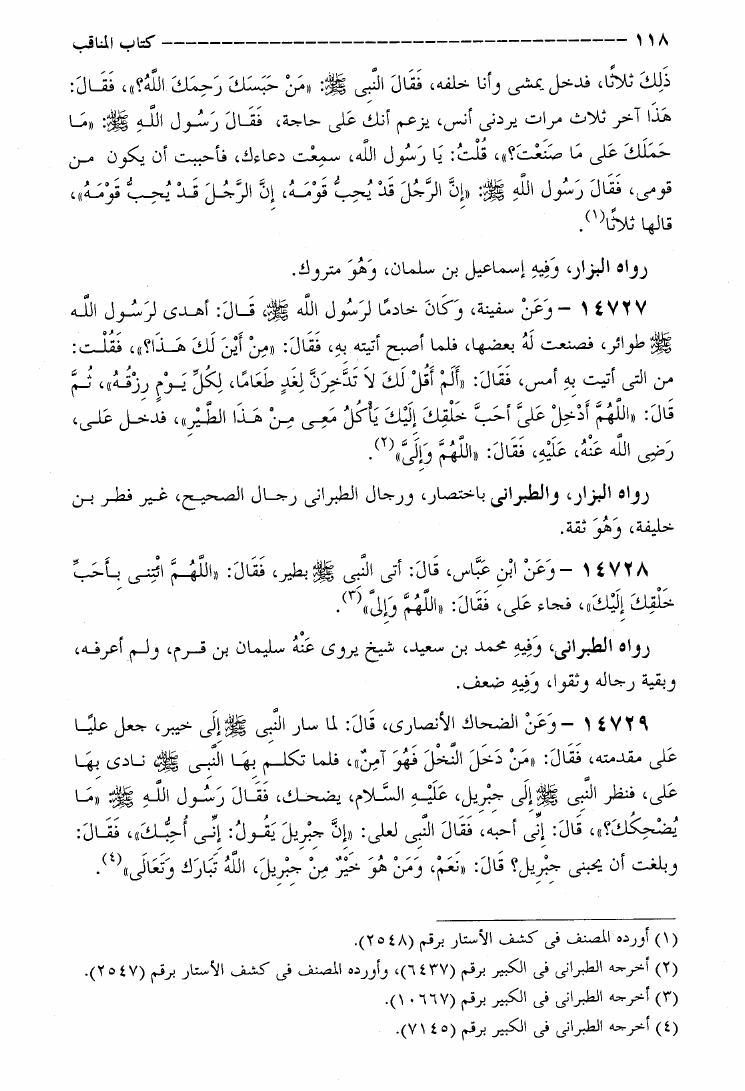 ١١٨ ـــــــــــــــــــــــــــــــــــــــــــــــــــــــ كتاب المناقب
ذَلِكَ ثلاثًا، فدخل يمشى وأنا خلفه، فَقَالَ النَّبِى ﷺ: «مَنْ حَبَسَكَ رَحِمَكَ اللَّهُ؟»، فَقَـالَ:
هَذَا آخر ثلاث مرات يردنى أنس، يزعم أنك عَلى حاجة، فَقَالَ رَسُول اللَّهِ ﷺ: «مَـا
حَمَلَكَ عَلى مَا صَنَعْتَ؟»، قُلْتُ: يَا رَسُول الله، سمِعْت دعاءك، فأحببت أن يكون مـن
قومى، فَقَالَ رَسُول اللَّهِ ﷺ: «إِنَّ الرَّجُلَ قَدْ يُحِبُّ قَوْمَـهُ، إِنَّ الرَّجُـلَ قَـدْ يُحِـبُّ قَوْمَـهُ»،
قالها ثلاثًا(١).
رواه البزار، وَفِيهِ إسماعيل بن سلمان، وَهُوَ متروك.
١٤٧٢٧ – وَعَنْ سفينة، وَكَانَ خادمًا لرَسُول الله ﷺ، قَـالَ: أهـدى لرَسُـول اللَّـه
ﷺ طوائر، فصنعت لَهُ بعضها، فلما أصبح أتيته بِهِ، فَقَالَ: «مِنْ أَيْنَ لَكَ هَـذَا؟»، فَقُلْـت:
من التى أتيت بِهِ أمس، فَقَالَ: «أَلَمْ أَقُلْ لَكَ لاَ تَدَّخِرَنَّ لِغَدٍ طَعَامًا، لِكُلِّ يَـوْمٍ رِزْقُـهُ»، ثُـمَّ
قَالَ: «اللَّهُمَّ أَدْخِلْ عَلىَّ أَحَبَّ خَلْقِكَ إِلَيْكَ يَأْكُلُ مَعِـى مِـنْ هَـذَا الطَّيْرِ»، فدخـل عَلـى،
رَضِى الله عَنْهُ، عَلَيْهِ، فَقَالَ: «اللَّهُمَّ وَإِلَىَّ»(٢).
رواه البزار، والطبرانى باختصار، ورجال الطبرانى رجـال الصحيـح، غـير فطـر بـن
خليفة، وَهُوَ ثقة.
١٤٧٢٨ – وَعَنْ ابْنِ عَبَّاس، قَالَ: أتى النَّبِى ﷺ بطير، فَقَالَ: «اللَّهُـمَّ ائْتِنـى بِـأَحَبِّ
خَلْقِكَ إِلَيْكَ»، فجاء عَلى، فَقَالَ: «اللَّهُمَّ وَإِلىَّ»(٣).
رواه الطبرانى، وَفِيهِ محمد بن سعيد، شيخ يروى عَنْهُ سليمان بن قـرم، ولـم أعرفـه،
وبقية رجاله وثقوا، وَفِيهِ ضعف.
١٤٧٢٩ – وَعَنْ الضحاك الأنصارى، قَالَ: لما سار النَّبِى ﷺ إِلَى خيبر، جعل عليًّـا
عَلى مقدمته، فَقَالَ: «مَنْ دَخَلَ النَّخْلَ فَهُوَ آمِنٌ»، فلما تكلـم بِهَـا النَّبِـى ﷺ نـادى بِهَـا
عَلى، فنظر النَّبِى ﷺ إِلَى جبْرِيل، عَلَيْـهِ السَّـلام، يضحـك، فَقَـالَ رَسُـول اللَّـهِ ﷺ «مَـا
يُضْحِكُكَ؟»، قَالَ: إِنِّى أحبه، فَقَالَ النَّبِى لعلى: «إِنَّ جِبْرِيلَ يَقُـولُ: إِنِّـى أُحِبُّـكَ»، فَقَـالَ:
وبلغت أن يحبنى جِبْرِيل؟ قَالَ: «نَعَمْ، وَمَنْ هُوَ خَيْرٌ مِنْ جِبْرِيلَ، اللَّهُ تَبَارَك وَتَعَالَى»(٤).
(١) أورده المصنف فى كشف الأستار برقم (٢٥٤٨).
(٢) أخرجه الطبرانى فى الكبير برقم (٦٤٣٧)، وأورده المصنف فى كشف الأستار برقم (٢٥٤٧).
(٣) أخرجه الطبرانى فى الكبير برقم (١٠٦٦٧).
(٤) أخرجه الطبرانى فى الكبير برقم (٧١٤٥).